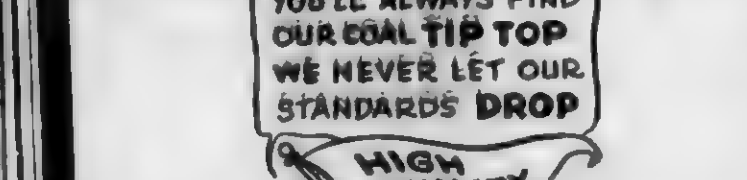 YOU'LL ALWAYS FIND
OUR COAL TIP TOP
WE NEVER LET OUR
STANDARDS DROP
HIGH